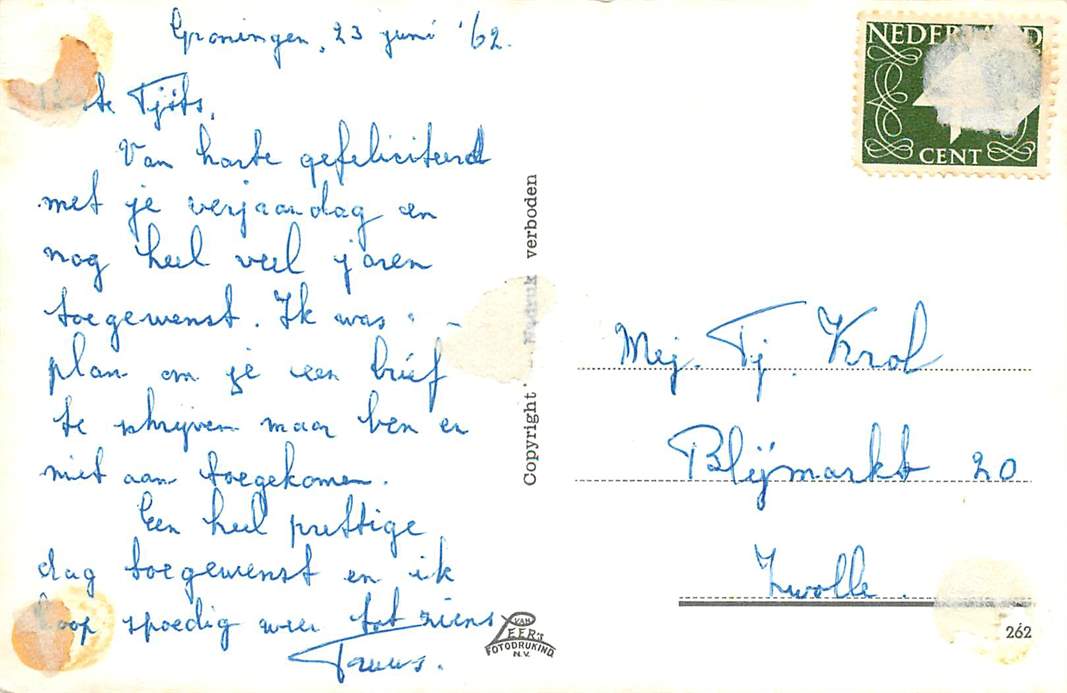 Groningen, 23 juni '62.
Tjits,
Van harte gefeliciteerd
met je verjaardag en
nog heel veel jaren
toegewenst. Ik was
plan om je een brief
te schrijven maar ben er
niet aan toegekomen.
Een heel prettige
dag toegewenst en ik
hoop spoedig weer tot ziens
Copyright - Nadruk verboden
VAN
LEER'S
FOTODRUKIND.
N.V.
NEDERLAND
CENT
Mej. Tj. Krol
Blijmarkt 20
Zwolle.
262